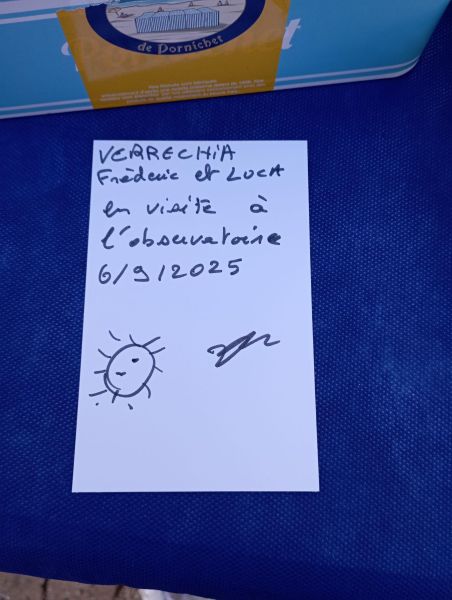 de Pornichet
VERRECHIA
Frèderic et LUCA
en visite à
l'observatoire
6/9/2025